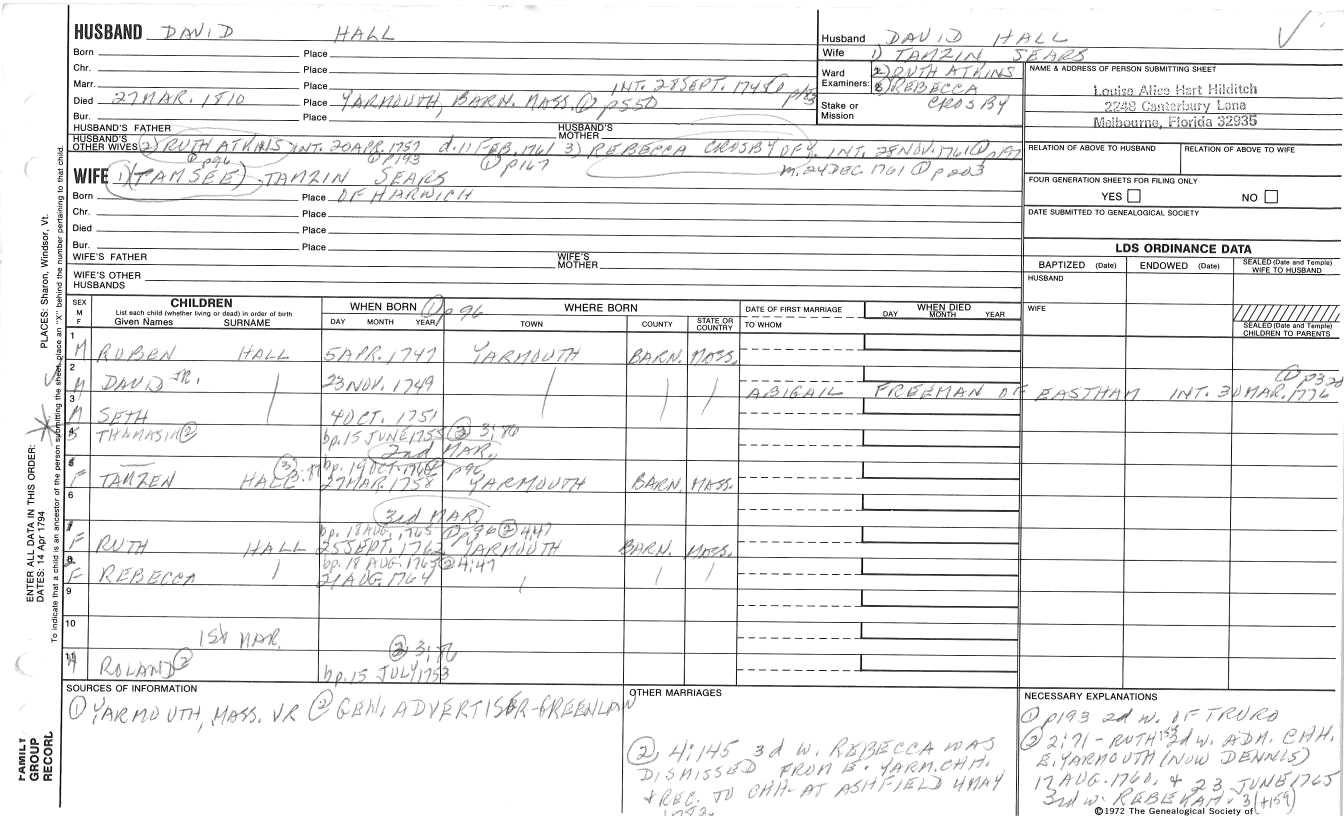 HUSBAND DAVID HALL
Born Place
Chr. Place
Marr. Place INT. 28 SEPT. 1745 ① p183
Died 27 MAR. 1810 Place YARMOUTH, BARN. MASS. ① p550
Bur. Place
HUSBAND'S FATHER HUSBAND'S MOTHER
HUSBAND'S OTHER WIVES 2) RUTH ATKINS INT. 20 APR. 1757 d. 11 FEB. 1761 3) REBECCA CROSBY OF Y. INT. 28 NOV. 1761 ① p197
① p96 ① p193 ① p167 m. 24 DEC. 1761 ① p203
WIFE 1) (TAMSEE) TAMZIN SEARS
Born Place OF HARWICH
Chr. Place
Died Place
Bur. Place
WIFE'S FATHER WIFE'S MOTHER
WIFE'S OTHER HUSBANDS
Husband DAVID HALL
Wife 1) TAMZIN SEARS
Ward 2) RUTH ATKINS
Examiners: 3) REBECCA CROSBY
Stake or Mission
NAME & ADDRESS OF PERSON SUBMITTING SHEET
Louise Alice Hart Hilditch
2248 Canterbury Lane
Melbourne, Florida 32935
RELATION OF ABOVE TO HUSBAND RELATION OF ABOVE TO WIFE
FOUR GENERATION SHEETS FOR FILING ONLY
YES NO
DATE SUBMITTED TO GENEALOGICAL SOCIETY
LDS ORDINANCE DATA
BAPTIZED (Date) ENDOWED (Date) SEALED (Date and Temple) WIFE TO HUSBAND
HUSBAND
WIFE
SEALED (Date and Temple) CHILDREN TO PARENTS
SEX M F CHILDREN WHEN BORN ① p96 WHERE BORN DATE OF FIRST MARRIAGE WHEN DIED
List each child (whether living or dead) in order of birth
Given Names SURNAME DAY MONTH YEAR TOWN COUNTY STATE OR COUNTRY TO WHOM DAY MONTH YEAR
1 M RUBEN HALL 5 APR. 1747 YARMOUTH BARN. MASS.
2 M DAVID JR. 23 NOV. 1749 ABIGAIL FREEMAN OF EASTHAM INT. 30 MAR. 1776 ① p328
3 M SETH 4 OCT. 1751
4 THOMASIN ② bp. 15 JUNE 1755 ② 3:76
2nd MAR.
5 F TAMZEN HALL bp. 19 OCT. 1760 27 MAR. 1758 p96 YARMOUTH BARN. MASS.
6
3rd MAR.
7 F RUTH HALL bp. 18 AUG. 1765 ① p96 ② 4:47 25 SEPT. 1762 YARMOUTH BARN. MASS.
8 F REBECCA bp. 18 AUG. 1765 ② 4:47 21 AUG. 1764
9
10
1st MAR.
11 M ROLAND ② bp. 15 JULY 1753 ② 3:76
SOURCES OF INFORMATION
① YARMOUTH, MASS. VR ② GEN. ADVERTISER-GREENLAW
OTHER MARRIAGES
② 4:145 3d W. REBECCA WAS
DISMISSED FROM E. YARM. CHH.
& REC. TO CHH. AT ASHFIELD 4 MAY
NECESSARY EXPLANATIONS
① p193 2d W. OF TRURO
② 2:71 - RUTH 2d W. ADM. CHH.
E. YARMOUTH (NOW DENNIS)
17 AUG. 1760, & 23 JUNE 1765
3rd W. REBEKAH - 3 (+159)
©1972 The Genealogical Society of
PLACES: Sharon, Windsor, Vt.
ENTER ALL DATA IN THIS ORDER:
DATES: 14 Apr 1794
To indicate that a child is an ancestor of the person submitting the sheet, place an "X" behind the number pertaining to that child.
FAMILY GROUP RECORD